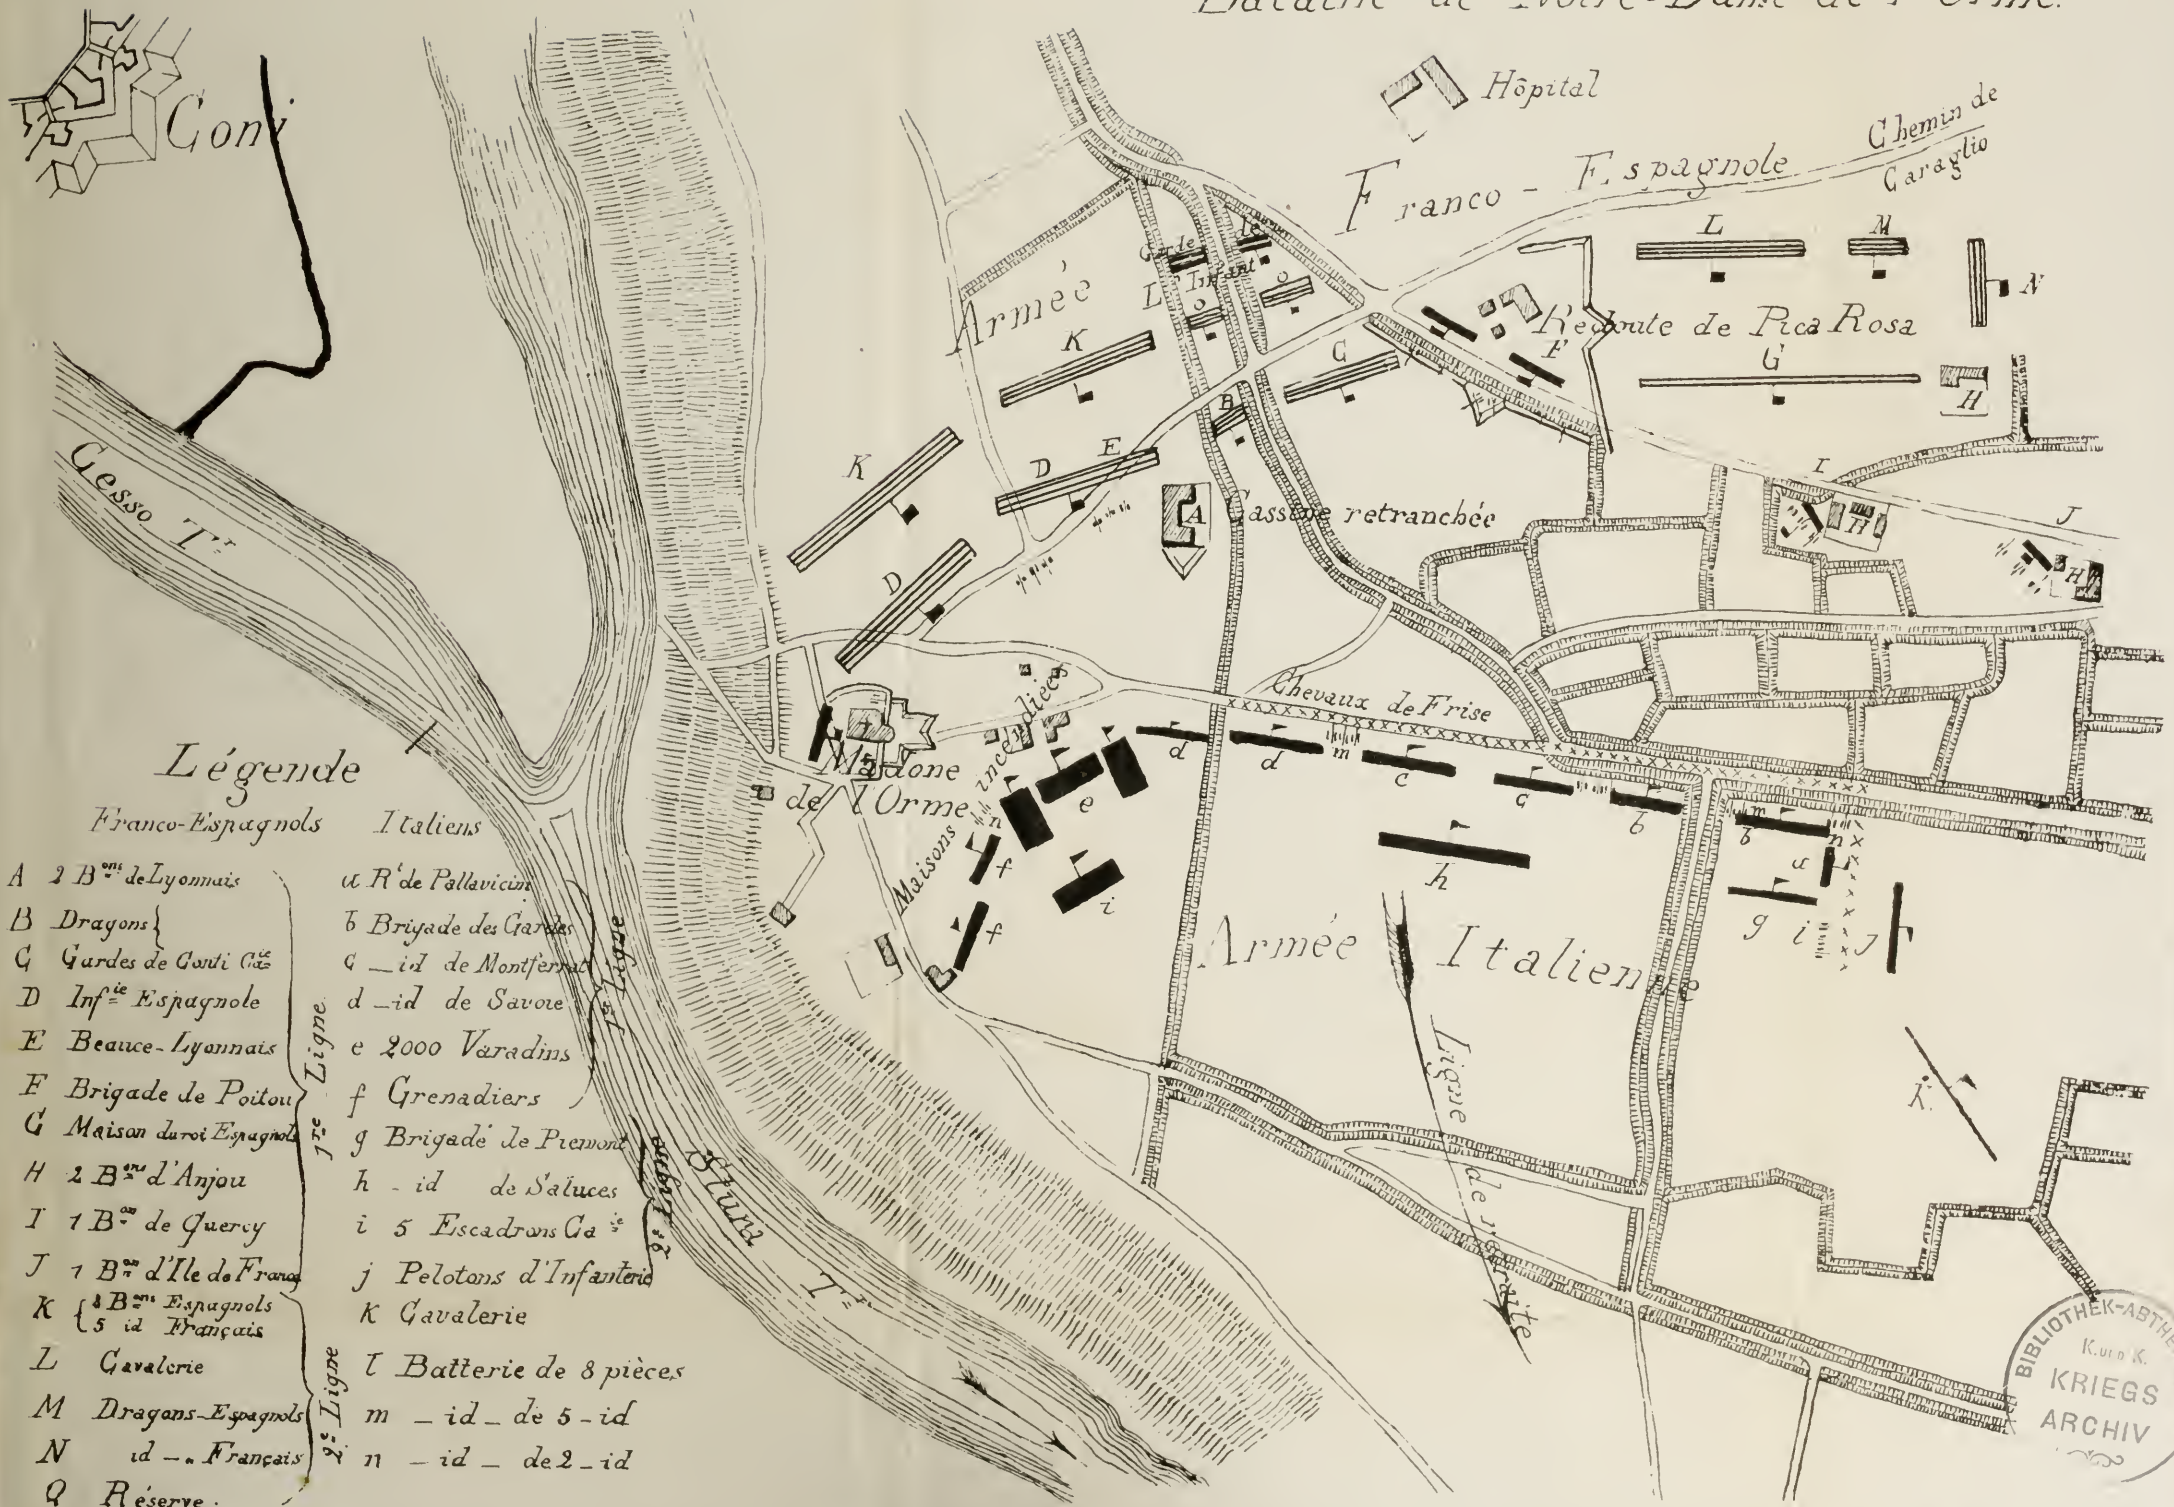 Bataille de Notre-Dame de l'Orme.
Coni
Hôpital
Chemin de
Caraglio
Armée Franco-Espagnole
L
M
N
Redoute de Pica Rosa
F
G
H
K
K
C
B
D
E
D
O
O
A
Cassine retranchée
I
H
J
H
Gesso Tt
Chevaux de Frise
Madone
de l'Orme
Maisons incendiées
d
d
m
c
c
b
m
b
n
a
e
n
f
f
i
h
g
i
J
K
Armée Italienne
Ligne de retraite
Stura Tt
Légende
Franco-Espagnols
A 2 Bons de Lyonnais
B Dragons
C Gardes de Conti Cie
D Infie Espagnole
E Beauce-Lyonnais
F Brigade de Poitou
G Maison du roi Espagnols
H 2 Bons d'Anjou
I 1 Bon de Quercy
J 1 Bon d'Ile de France
1re Ligne
K 8 Bons Espagnols
5 id Français
L Cavalerie
M Dragons-Espagnols
N id - Français
2e Ligne
Q Réserve.
Italiens
a Rt de Pallavicini
b Brigade des Gardes
c _ id de Montferrat
d _ id de Savoie
e 2000 Varadins
f Grenadiers
1re Ligne
g Brigade de Piemont
h - id de Saluces
i 5 Escadrons Caie
j Pelotons d'Infanterie
2e Ligne
K Cavalerie
l Batterie de 8 pièces
m _ id _ de 5 _ id
n _ id _ de 2 _ id
BIBLIOTHEK-ABTHE
K. und K.
KRIEGS
ARCHIV